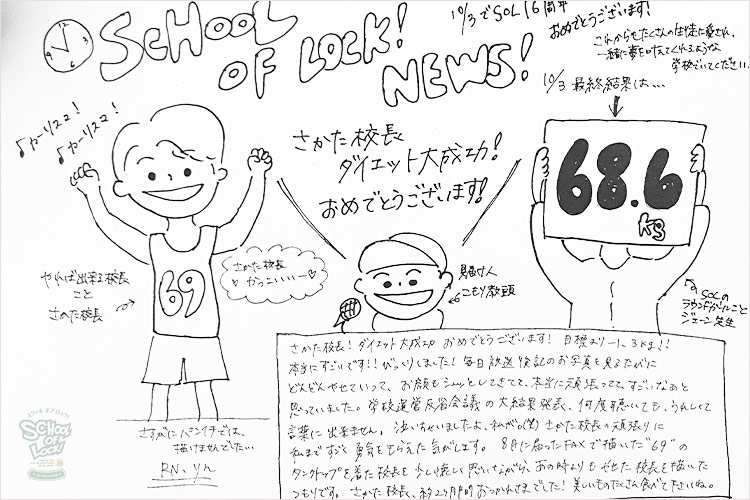 SCHOOL
OF LOCK!
NEWS!
10/3でSOL16周年
おめでとうございます!
これからもたくさんの生徒に愛され、
一緒に夢を叶えてくれるような
学校でいてください。
10/3 最終結果は…
♪カーリスマ!
♪カーリスマ!
さかた校長
ダイエット大成功!
おめでとうございます!
68.6
kg
やれば出来る校長
こと
さかた校長
69
さかた校長
かっこいいー♡
見届け人
こもり教頭
SOLの
ラウンドガールこと
ジェーン先生
さかた校長!ダイエット大成功 おめでとうございます! 目標より-1.3kg!!
本当にすごいです!!びっくりしました!毎日放送後記のお写真を見るたびに
どんどんやせていって、お顔もシュッとしてきてて、本当に頑張ってて、すごいなぁと
思っていました。学校運営反省会議の大結果発表、何度聴いても、うれしくて
言葉に出来ません。泣いちゃいましたよ、わたし(笑)さかた校長の頑張りに
私まですごく勇気をもらえた気がします。 8月に届ったFAXで描いた"69"の
タンクトップを着た校長を少し懐しく思いながら、あの時よりもやせた校長を描いた
つもりです。さかた校長、約2ヶ月間おつかれさまでした!美しいものたくさん食べて下さいね。
さすがにパンイチでは、
描けませんでした…
RN.りん
SCHOOL
OF
LOCK!